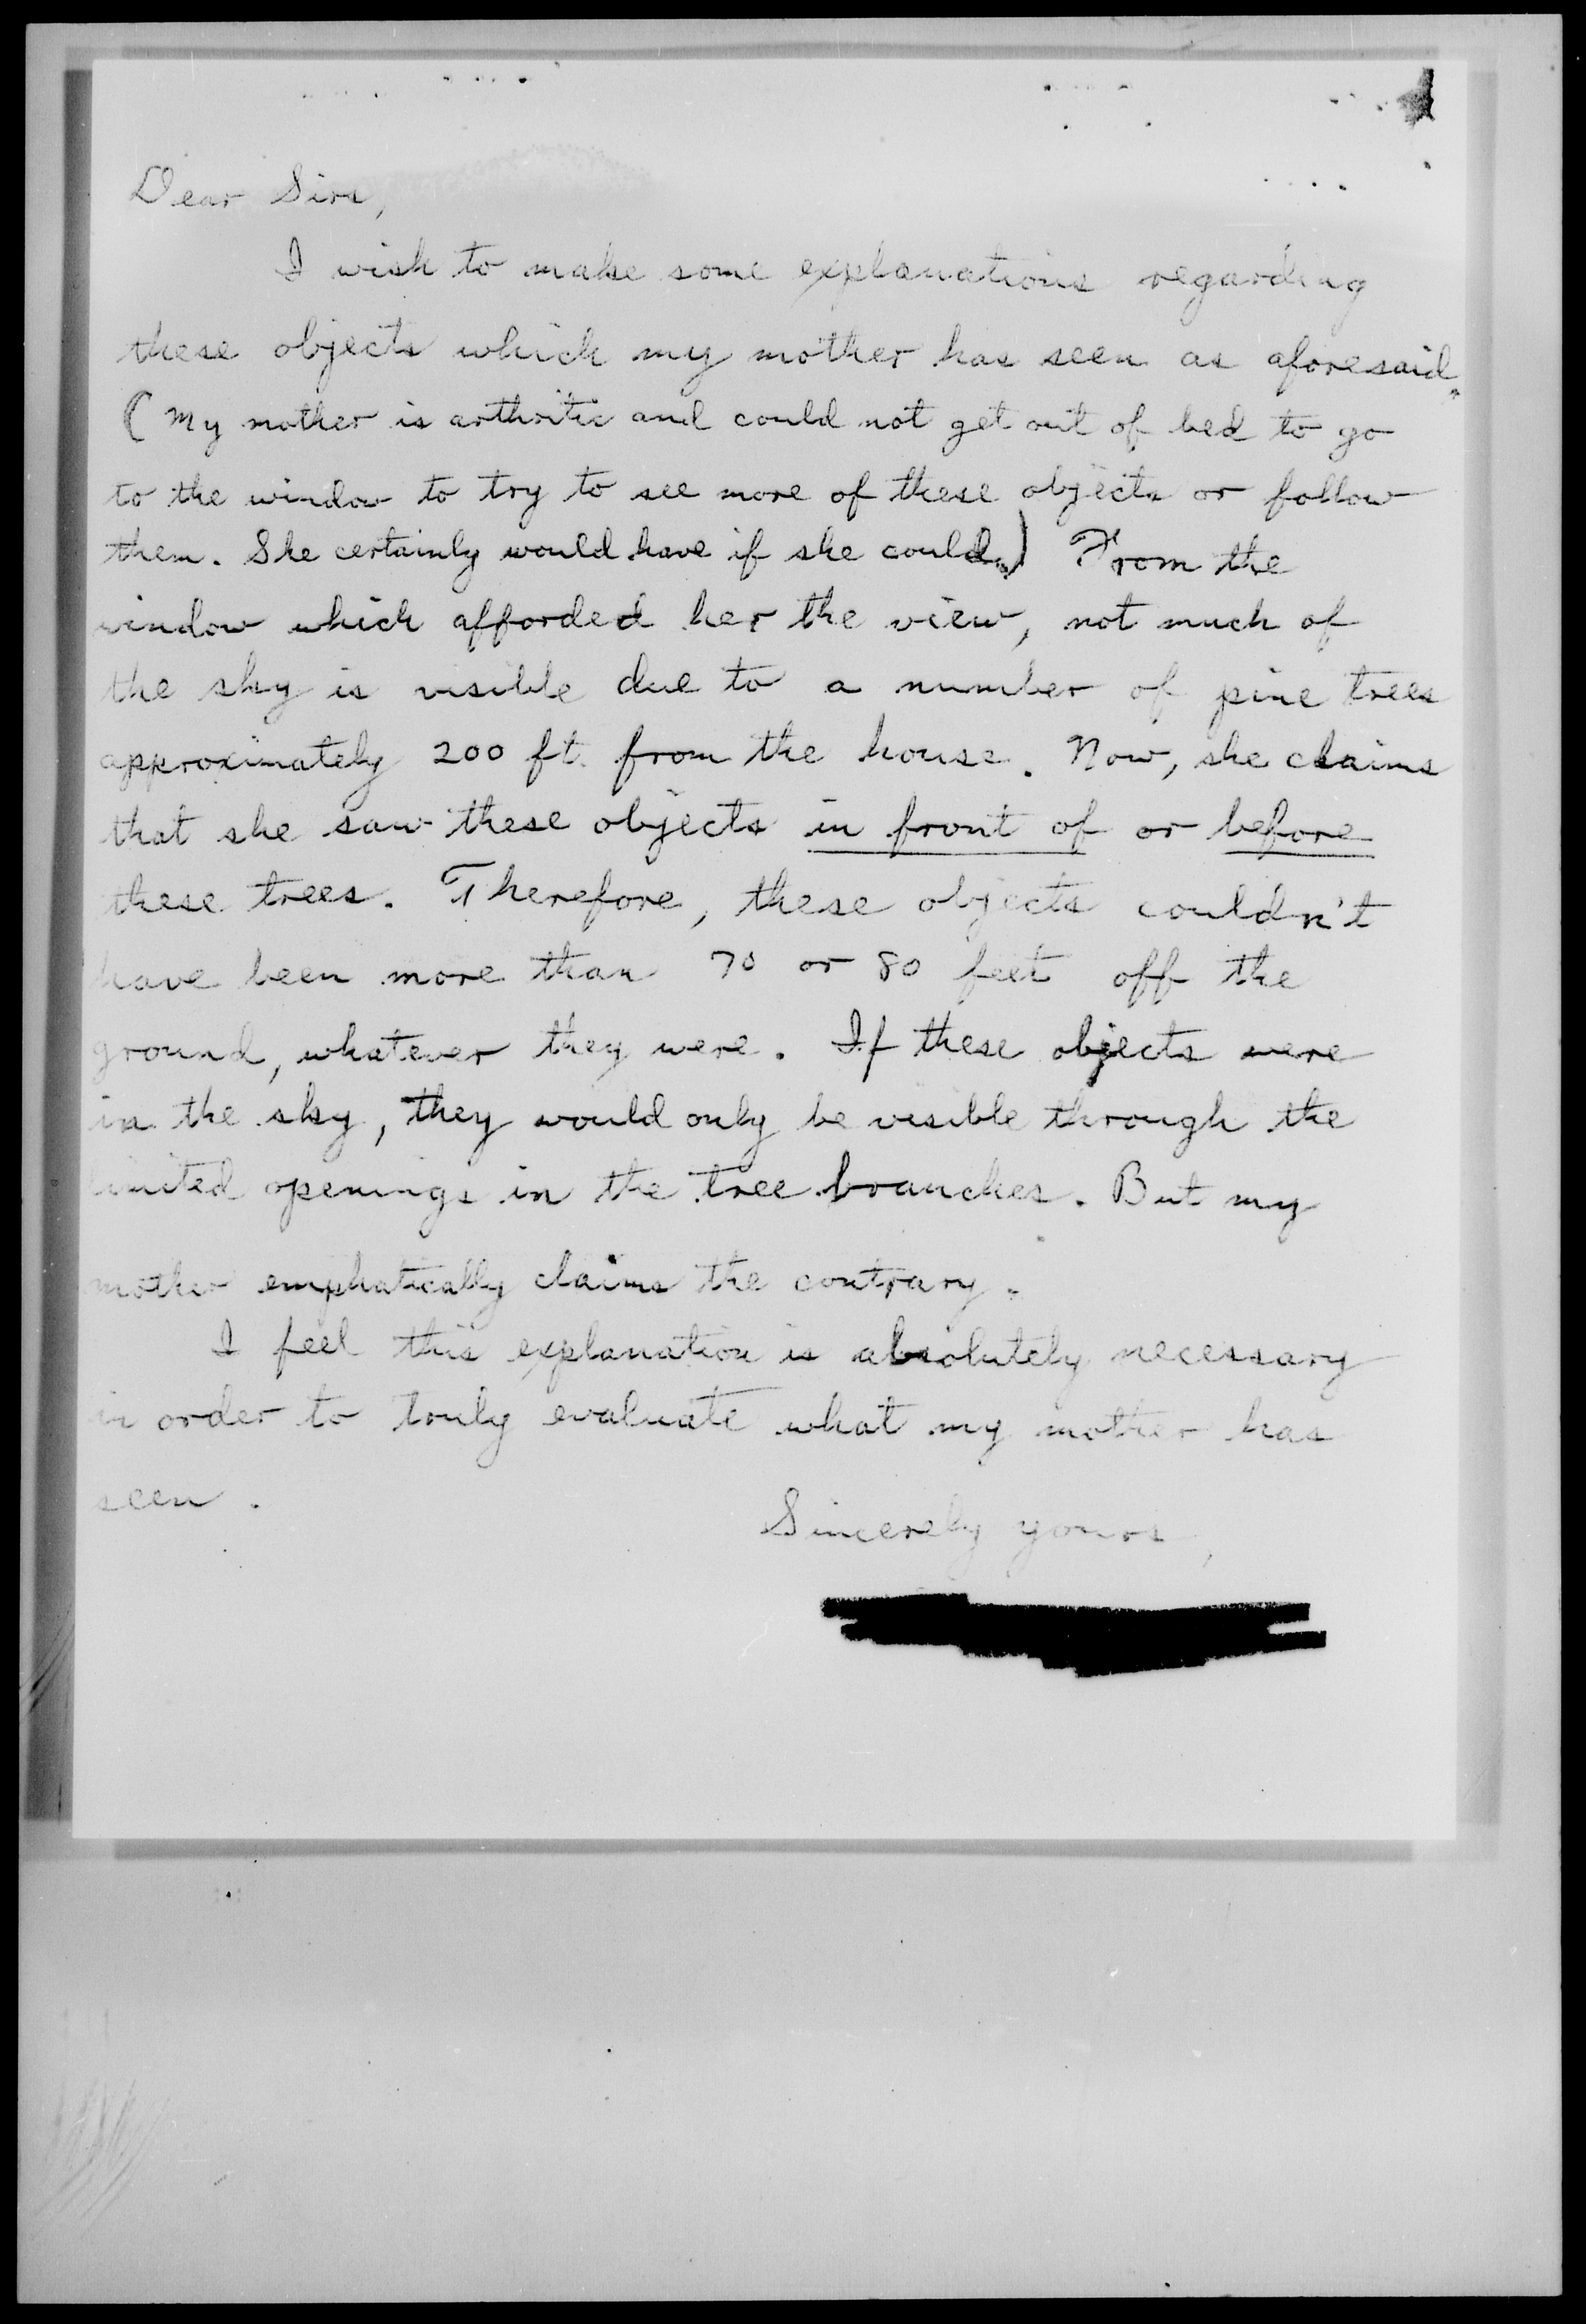 Dear Sirs,
I wish to make some explanations regarding
these objects which my mother has seen as aforesaid.
(My mother is arthritic and could not get out of bed to go
to the window to try to see more of these objects or follow
them. She certainly would have if she could.) From the
window which afforded her the view, not much of
the sky is visible due to a number of pine trees
approximately 200 ft. from the house. Now, she claims
that she saw these objects in front of or before
these trees. Therefore, these objects couldn't
have been more than 70 or 80 feet off the
ground, whatever they were. If these objects were
in the sky, they would only be visible through the
limited openings in the tree branches. But my
mother emphatically claims the contrary.
I feel this explanation is absolutely necessary
in order to truly evaluate what my mother has
seen.
Sincerely yours,